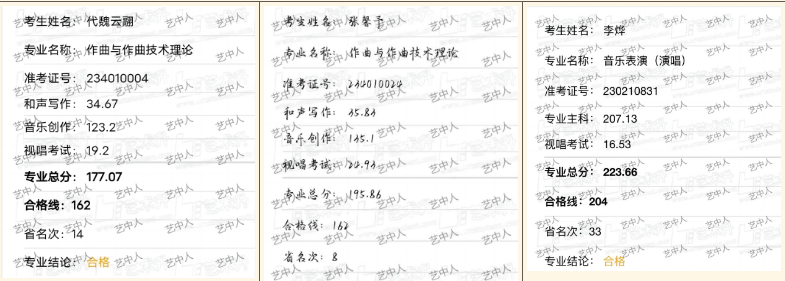 考生姓名：代魏云翮
专业名称：作曲与作曲技术理论
准考证号：234010004
和声写作：34.67
音乐创作：123.2
视唱考试：19.2
专业总分：177.07
合格线：162
省名次：14
专业结论：合格
考生姓名：张馨予
专业名称：作曲与作曲技术理论
准考证号：234010024
和声写作：35.83
音乐创作：135.1
视唱考试：24.93
专业总分：195.86
合格线：162
省名次：8
考生姓名：李烨
专业名称：音乐表演（演唱）
准考证号：230210831
专业主科：207.13
视唱考试：16.53
专业总分：223.66
合格线：204
省名次：33
专业结论：合格
艺中人